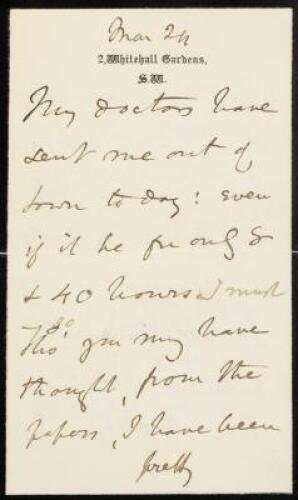 Mar 24
2, Whitehall Gardens,
S.W.
My doctors have
sent me out of
town to day: even
if it be for only &
& 40 hours I must
go
Tho' you may have
thought, from the
papers, I have been
pretty